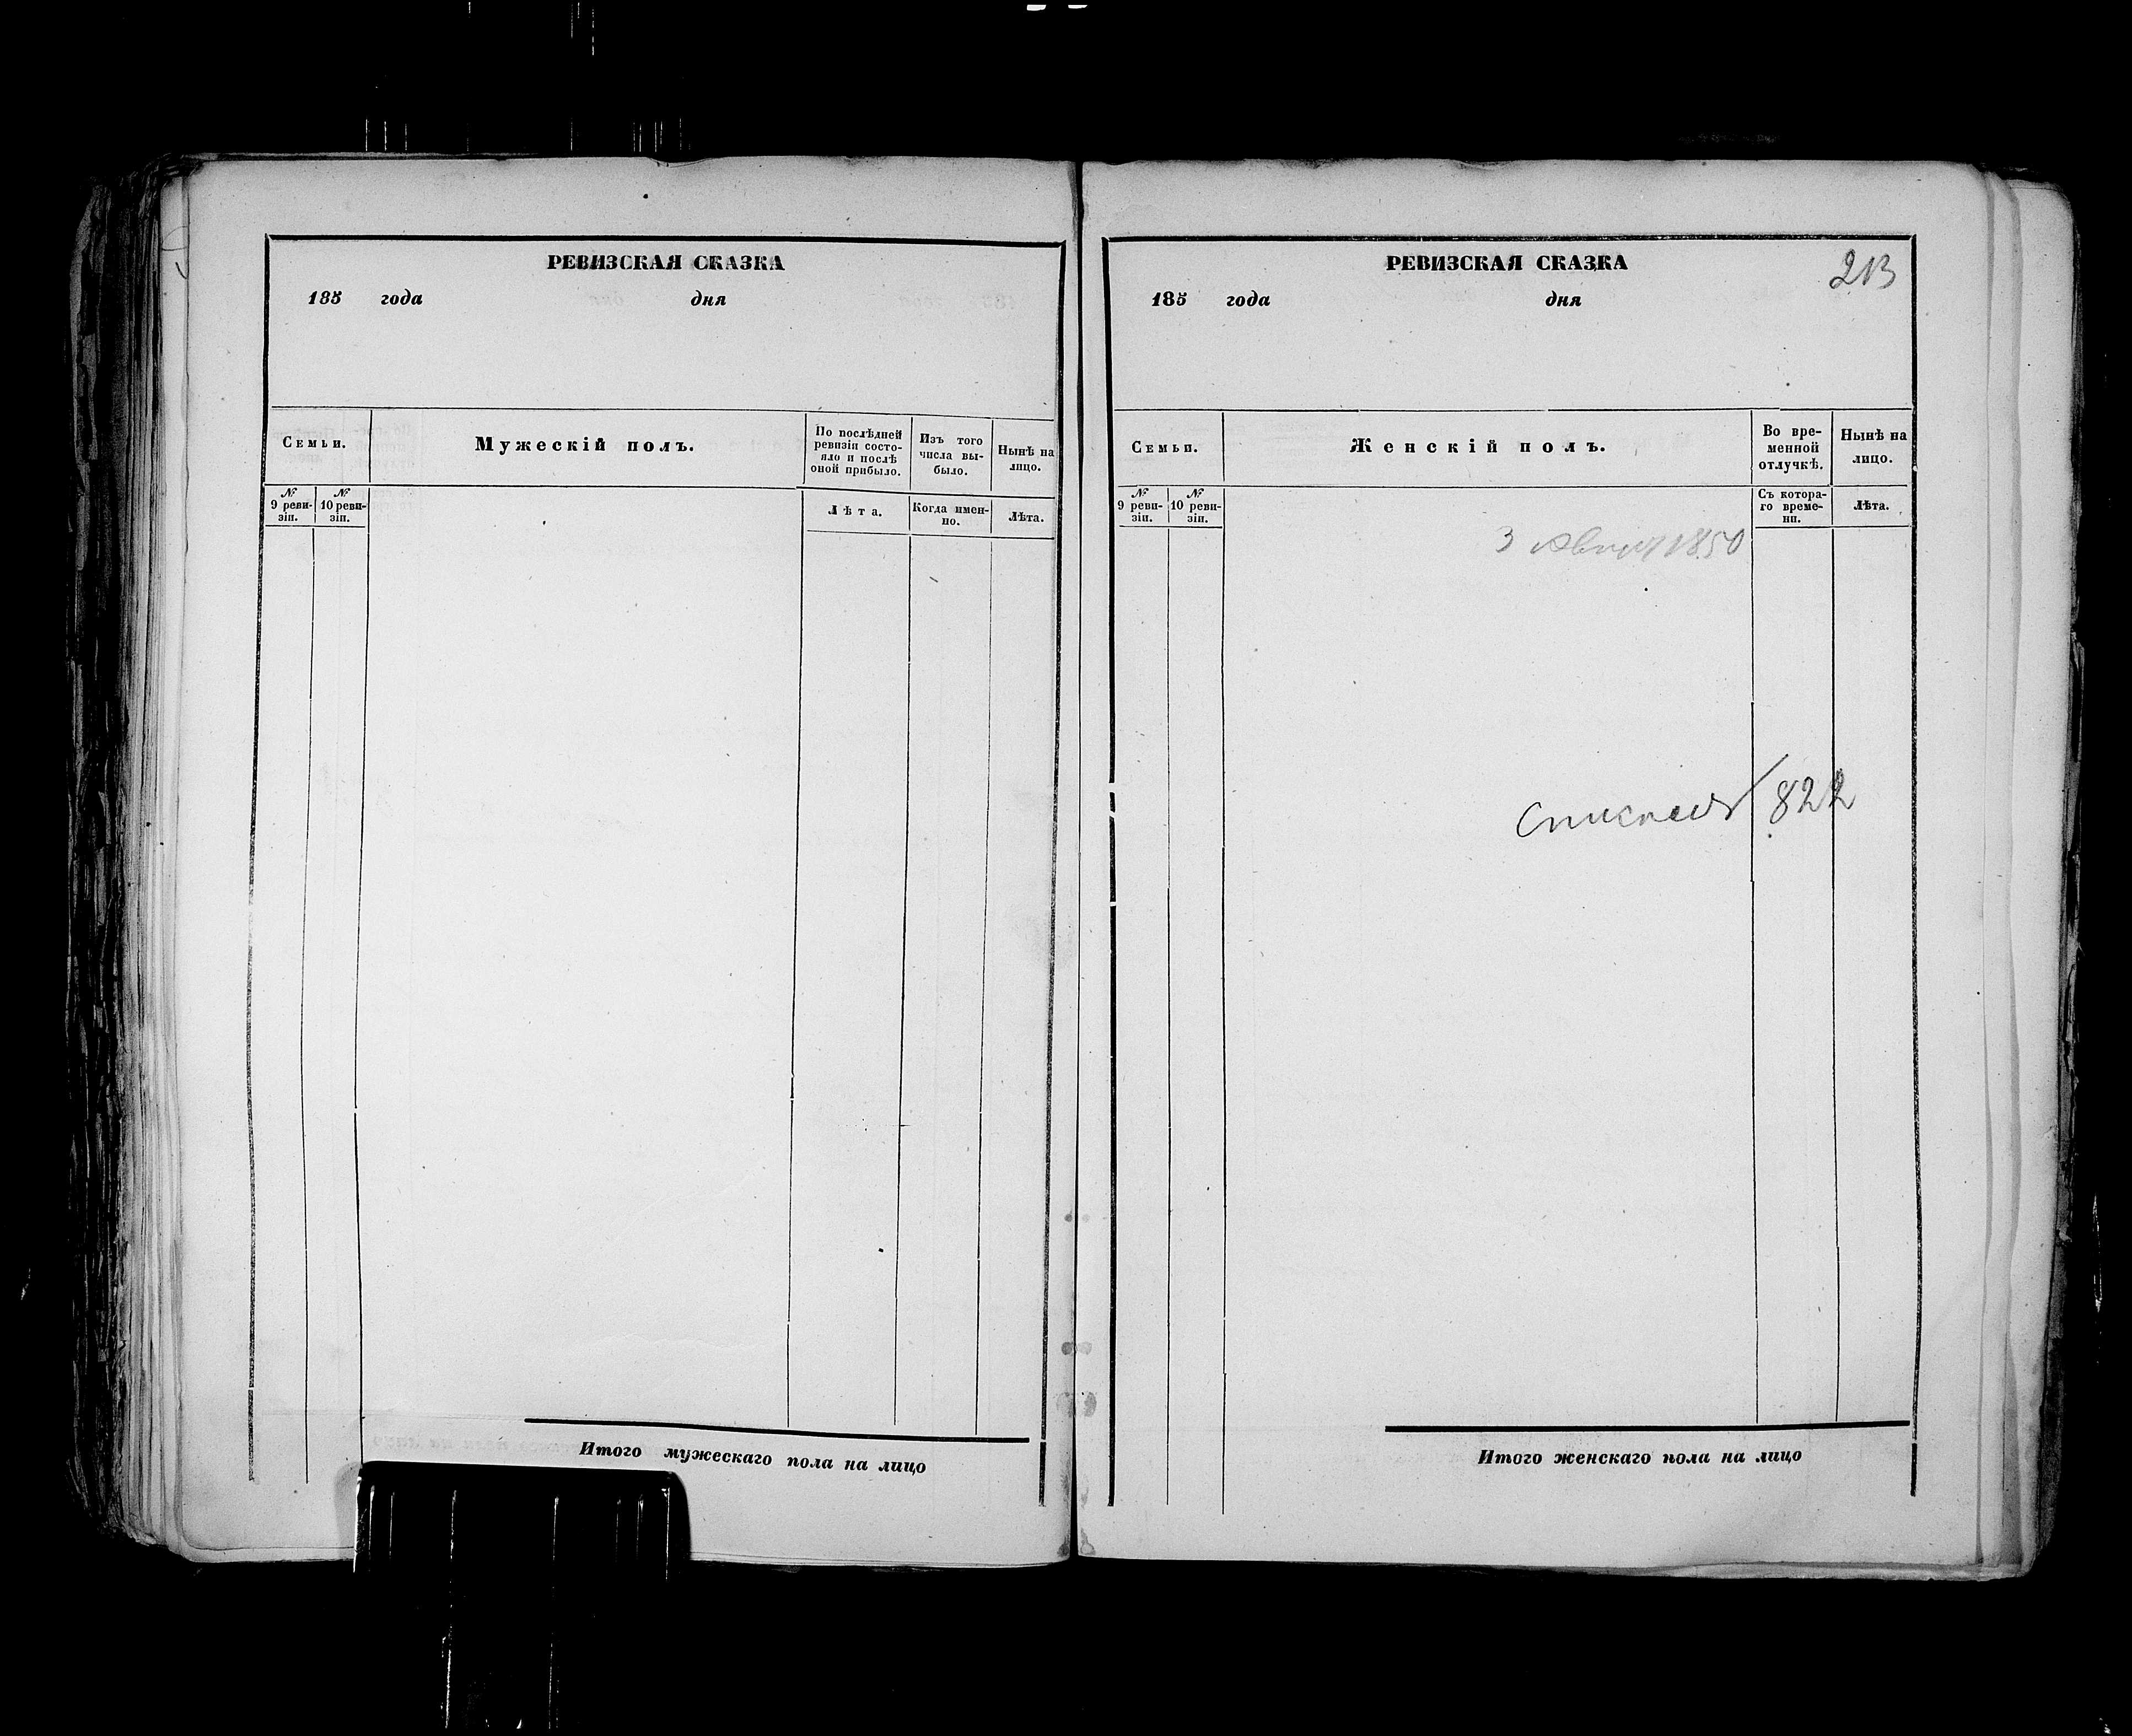 РЕВИЗСКАЯ СКАЗКА
185 года дня
Семьи.
Мужескій полъ.
По послѣдней
ревизіи состо-
яло и послѣ
оной прибыло.
Изъ того
числа вы-
было.
Нынѣ на
лицо.
№
9 реви-
зіи.
№
10 реви-
зіи.
Лѣта.
Когда имен-
но.
Лѣта.
Итого мужескаго пола на лицо
213
РЕВИЗСКАЯ СКАЗКА
185 года дня
Семьи.
Женскій полъ.
Во вре-
менной
отлучкѣ.
Нынѣ на
лицо.
№
9 реви-
зіи.
№
10 реви-
зіи.
Съ котора-
го време-
ни.
Лѣта.
3 1850
822
Итого женскаго пола на лицо